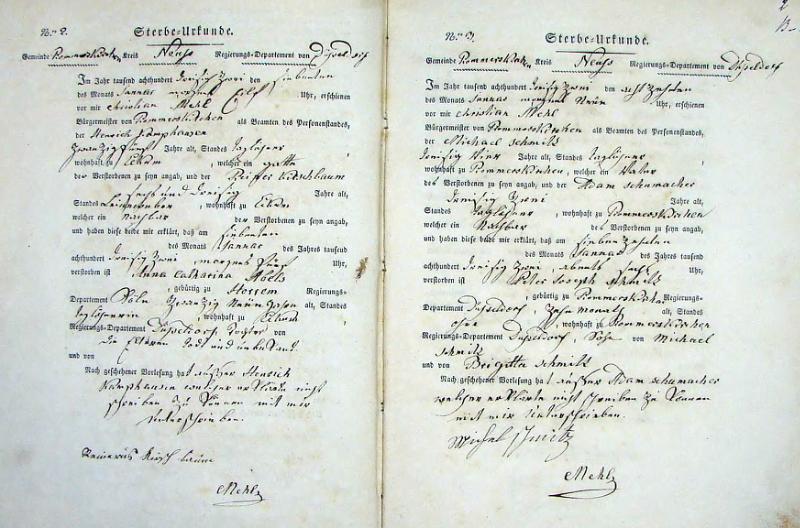 N.ro 2. Sterbe=Urkunde.
Gemeinde Rommerskirchen Kreis Neuss Regierungs-Departement von Düsseldorf
Im Jahr tausend achthundert dreisig zwei den siebenten
des Monats Januar morgens Elf Uhr, erschienen
vor mir christian Mehl
Bürgermeister von Rommerskirchen als Beamten des Personenstandes,
der Henrich Kamphausen
zwanzig fünf Jahre alt, Standes taglöhner
wohnhaft zu Eckum, welcher ein gatte
der Verstorbenen zu seyn angab, und der Kirschbaum
sechs und dreisig Jahre alt,
Standes Leinenweber, wohnhaft zu Eckum
welcher ein nachbar der Verstorbenen zu seyn angab,
und haben diese beide mir erklärt, daß am siebenten
des Monats Januar des Jahres tausend
achthundert dreisig zwei, morgens fünf Uhr,
verstorben ist Anna Catharina Abels
, gebürtig zu Horrem Regierungs-
Departement Köln zwanzig Neun Jahre alt, Standes
taglöhnerin, wohnhaft zu Eckum
Regierungs-Departement Düsseldorf, Tochter von
die Elteren todt und unbekant
und von
Nach geschehener Vorlesung hat ausser Henrich
Kamphausen welcher erklärte nicht
schreiben zu können mit mir
unterschrieben.
Reinerus Kirschbaum
Mehl
2
N.ro 3. Sterbe=Urkunde.
Gemeinde Rommerskirchen Kreis Neuss Regierungs-Departement von Düsseldorf
Im Jahr tausend achthundert dreisig zwei den achtzehnten
des Monats Januar morgens Neun Uhr, erschienen
vor mir christian Mehl
Bürgermeister von Rommerskirchen als Beamten des Personenstandes,
der Michael schmitz
dreisig vier Jahre alt, Standes taglöhner
wohnhaft zu Rommerskirchen, welcher ein Vater
des Verstorbenen zu seyn angab, und der Adam schumacher
dreisig zwei Jahre alt,
Standes taglöhner, wohnhaft zu Rommerskirchen
welcher ein Nachbar des Verstorbenen zu seyn angab,
und haben diese beide mir erklärt, daß am siebenzehnten
des Monats Januar des Jahres tausend
achthundert dreisig zwei, abends Uhr,
verstorben ist Peter Joseph schmitz
, gebürtig zu Rommerskirchen Regierungs-
Departement Düsseldorf, Zehn monath alt, Standes
ohne, wohnhaft zu Rommerskirchen
Regierungs-Departement Düsseldorf, Sohn von Michael
schmitz
und von Brigitta schmitz
Nach geschehener Vorlesung hat ausser Adam schumacher
welcher erklärte nicht schreiben zu können
mit mir unterschrieben.
Michel schmitz
Mehl